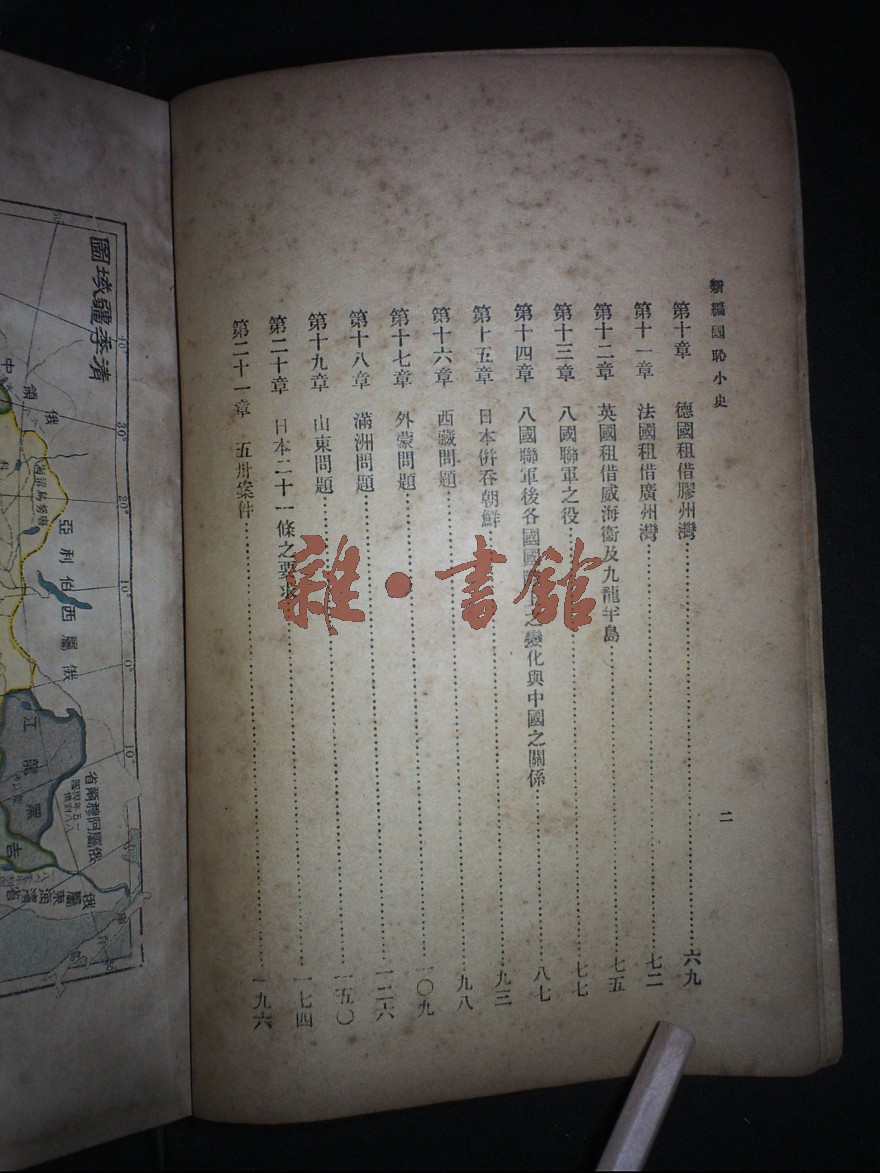 新編國恥小史
二
第十章 德國租借膠州灣……六九
第十一章 法國租借廣州灣……七二
第十二章 英國租借威海衞及九龍半島……七五
第十三章 八國聯軍之役……七七
第十四章 八國聯軍後各國國 之變化與中國之關係……八七
第十五章 日本併吞朝鮮……九三
第十六章 西藏問題……九八
第十七章 外蒙問題……一〇九
第十八章 滿洲問題……一二六
第十九章 山東問題……一五〇
第二十章 日本二十一條之要求……一七四
第二十一章 五卅案件……一九六
雜·書館
清季疆域圖
俄領中
亞利伯西屬俄
江龍黑
吉
省爾穆阿屬俄
俄屬東海濱省
40°
30°
20°
10°
0°
10°